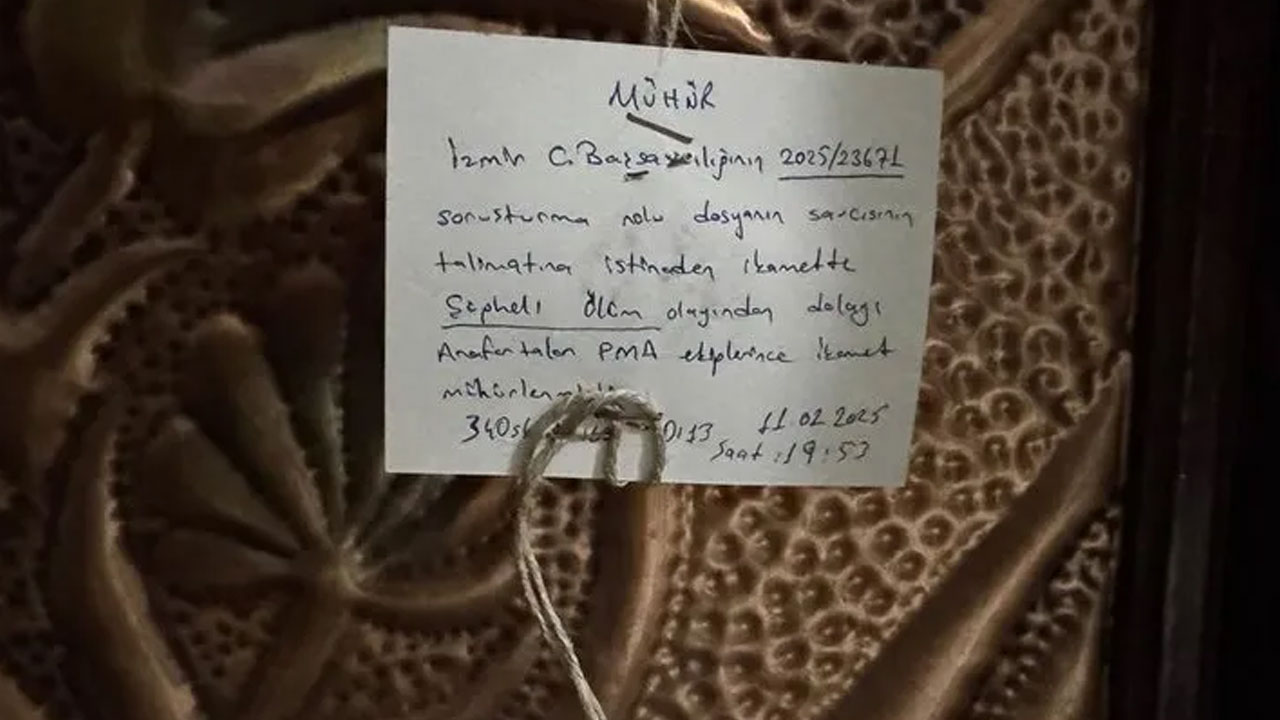 MÜHÜR
İzmir C. Başsavcılığının 2025/23671
soruşturma nolu dosyanın savcısının
talimatına istinaden ikamette
Şüpheli Ölüm olayından dolayı
Anafartalar PMA ekiplerince ikamet
11.02.2025
Saat :19:53